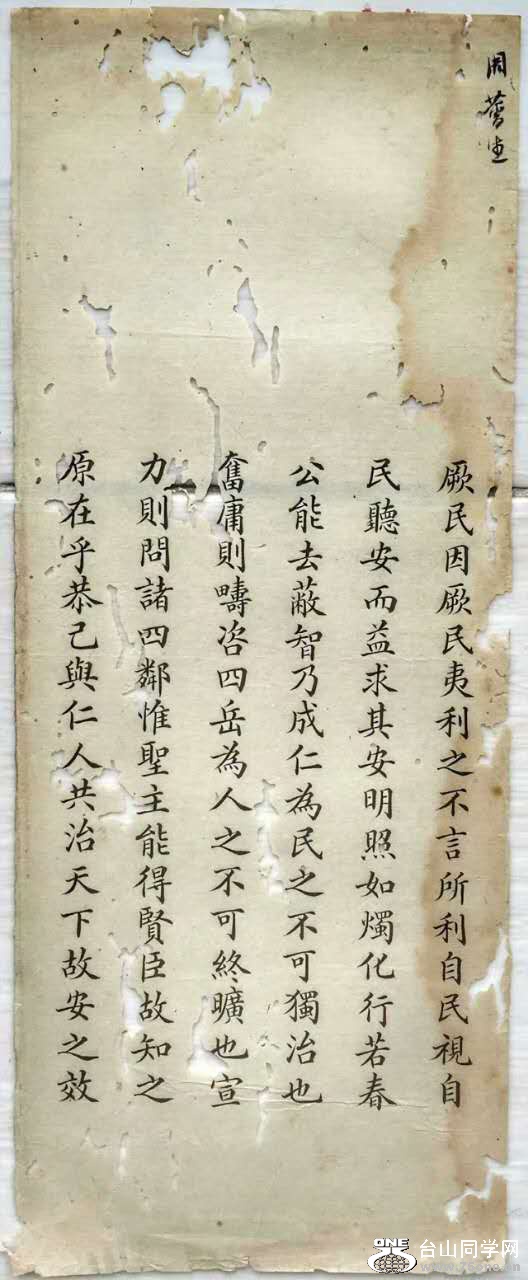 周薈生
厥民因厥民夷利之不言所利自民視自
民聽安而益求其安明照如燭化行若春
公能去蔽智乃成仁為民之不可獨治也
奮庸則疇咨四岳為人之不可終曠也宣
力則問諸四鄰惟聖主能得賢臣故知之
原在乎恭己與仁人共治天下故安之效
ONE
台山同学网